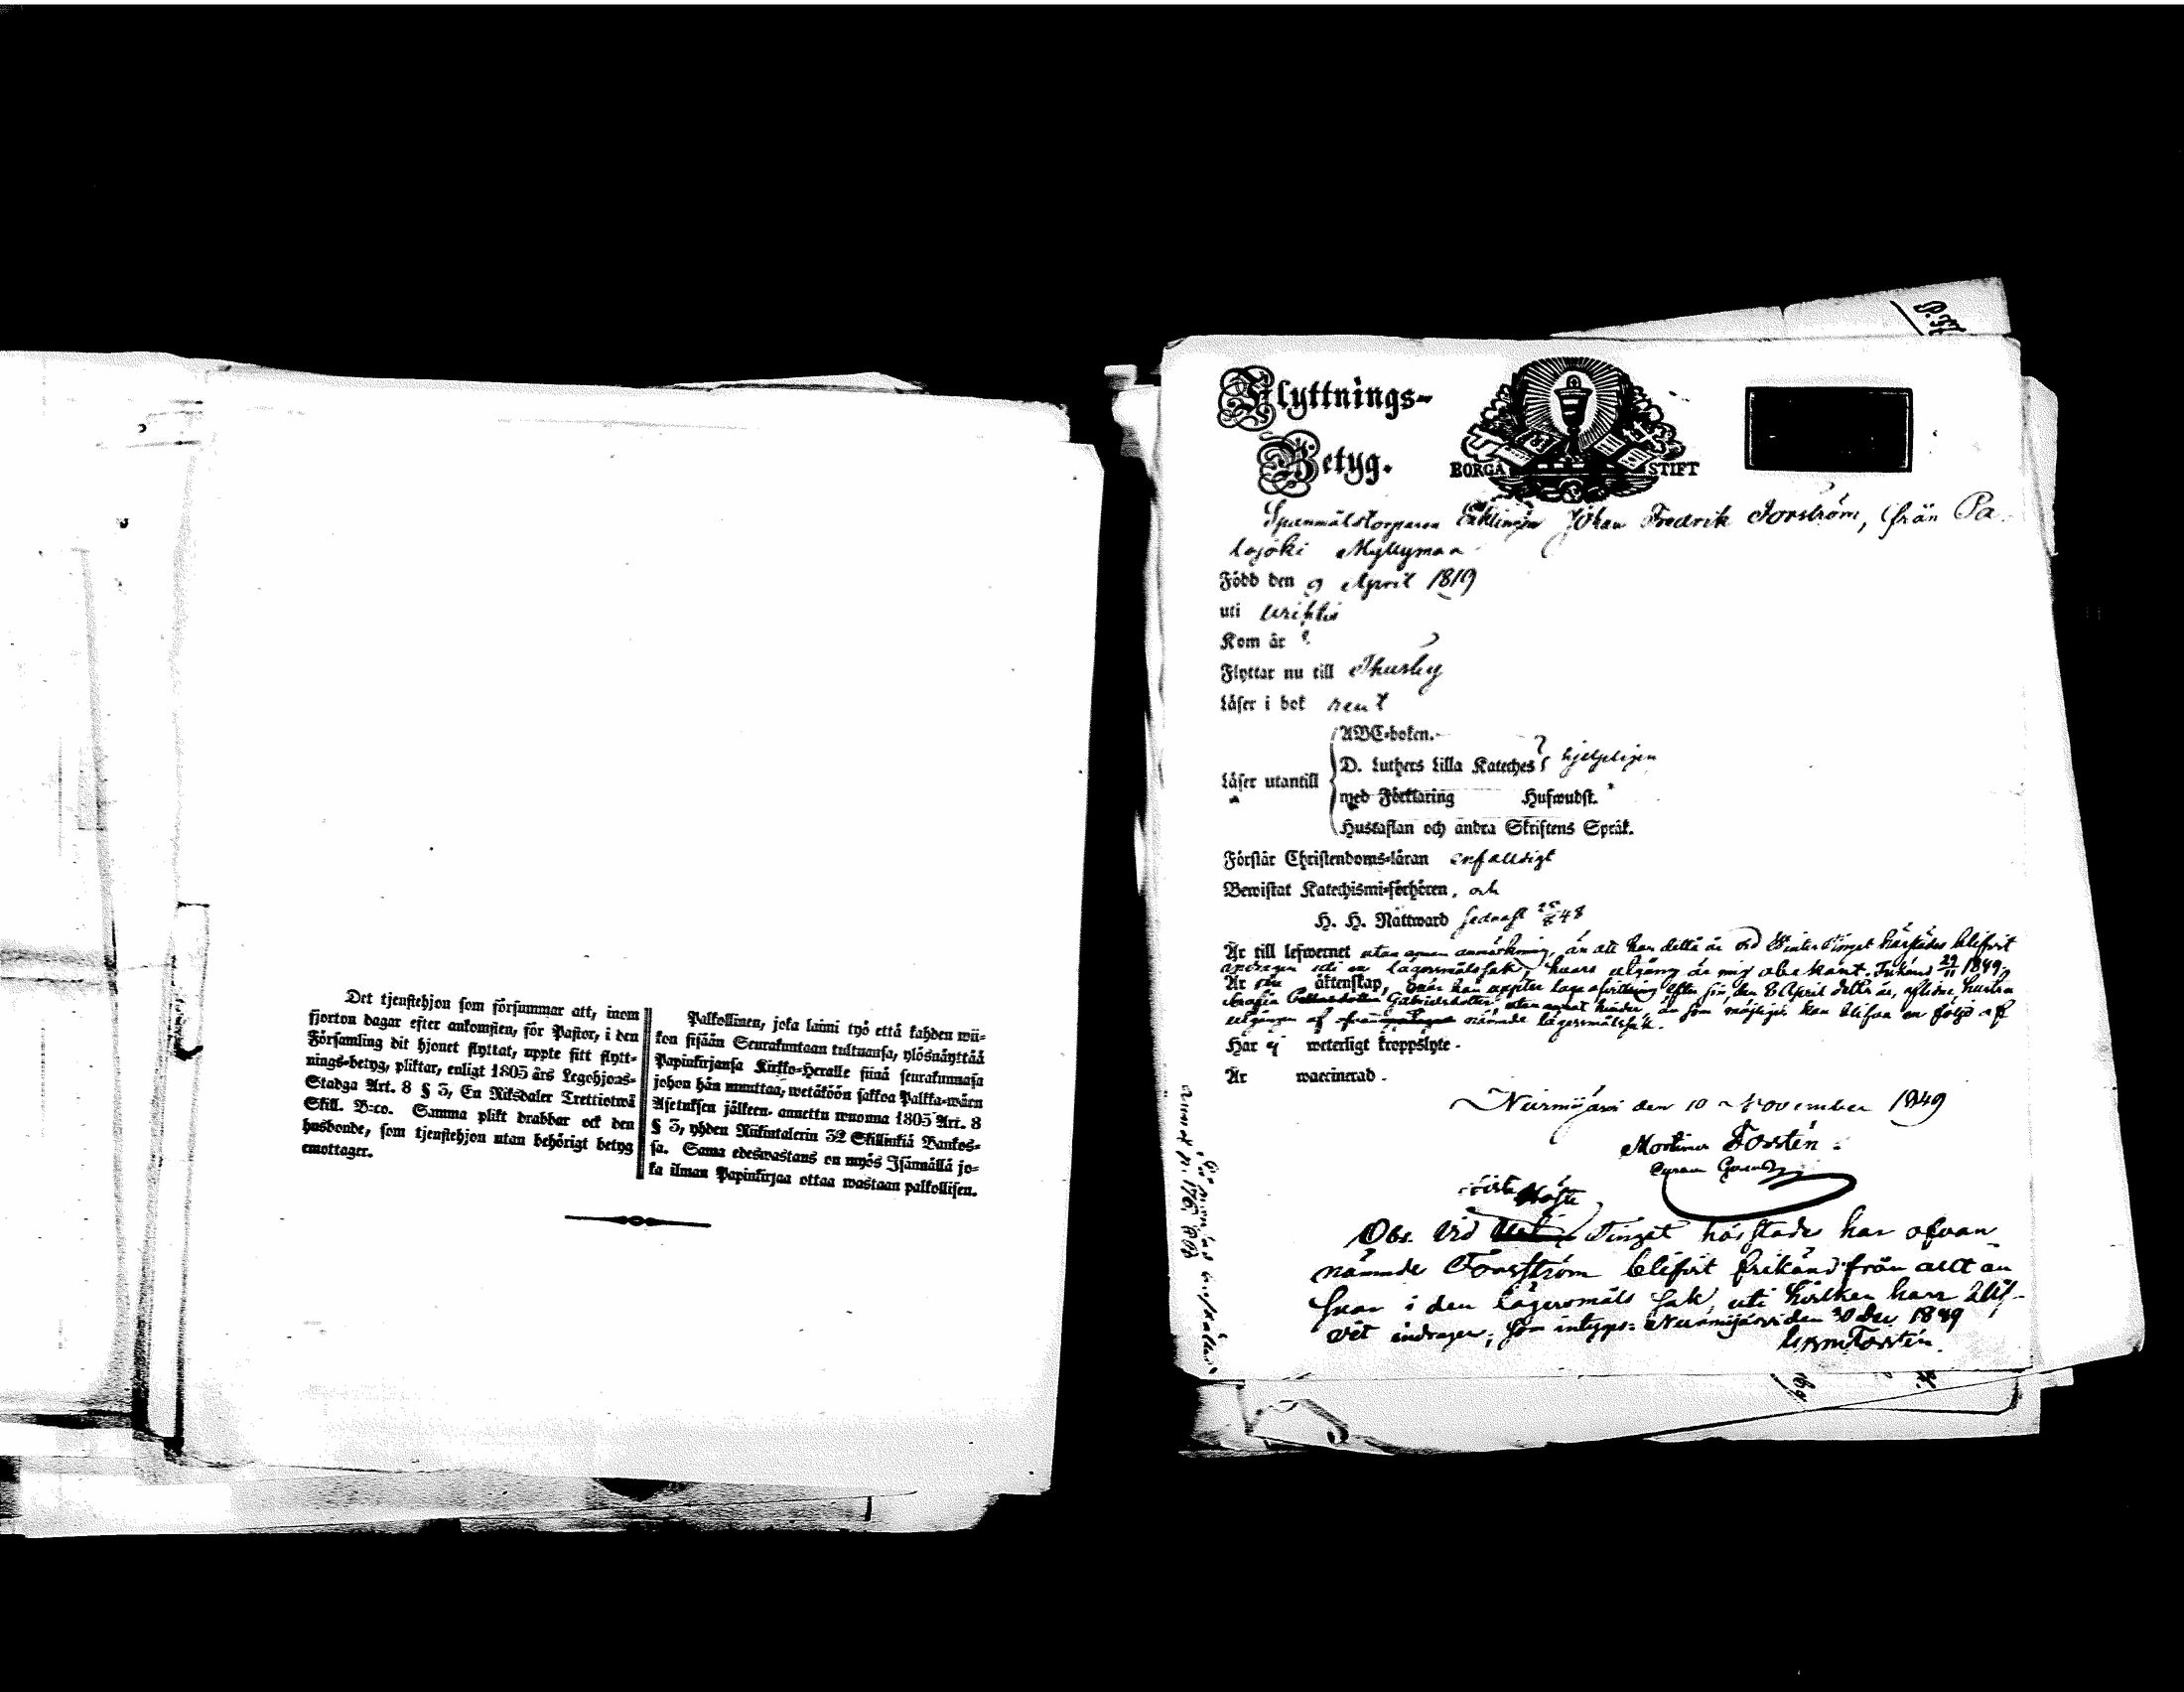 Det tjenstehjon som försummar att, inom
fjorton dagar efter ankomsten, för Pastor, i den
Församling dit hjonet flyttat, uppte sitt flytt-
nings-betyg, pliktar, enligt 1805 års Legohjons-
Stadga Art. 8 § 3, En Riksdaler Trettiotwå
Skill. B:co. Samma plikt drabbar ock den
husbonde, som tjenstehjon utan behörigt betyg
emottager.
Palkollinen, joka laimi lyö että kahden wii-
kon sisään Seurakuntaan tultuansa, ylösnäyttää
Papinkirjansa Kirkko-Heralle siinä seurakunnasa
johon hän muuttaa, wetäköön sakkoa Palkka-wäen
Asetuksen jälkeen annettu wuonna 1805 Art. 8
§ 3, yhden Riikintalerin 32 Killinkiä Bankos-
sa. Sama edeswastaus on myös Isännällä jo-
ka ilman Papinkirjaa ottaa wastaan palkollisen.
P. H
Flyttnings-
Betyg.
BORGÅ STIFT
Spanmålstorparen Enklingen Johan Fredrik Forström, från Pa-
lojoki Myllymaa
Född den 9 April 1819
uti
Kom år
Flyttar nu till Thusby
Läser i bok rent
Läser utantill
ABC-boken.
D. Luthers Lilla Kateches hjelpligen
med Förklaring Hufwudst.
Hustaflan och andra Skriftens Språk.
Förstår Christendoms-läran enfaldigt
Bewistat Katechismi-förhören, och
H. H. Nattward sednast 48
Är till lefwernet utan annan anmärkning, än att han detta år vid Winter Tinget härstädes blifvit
indragen uti en lägersmålssak, hvars utgång är mig obekant. Frikänd 29/11 1849.
Är äktenskap, laga afvittring efter sin, den 8 April detta år, aflidne hustru
Gabrielsdotter, utan annat hinder, än som möjligen kan blifva en följd af
utgången af nämnde lägersmålssak.
Har ej weterligt kroppslyte.
Är waccinerad.
Nurmijärvi den 10 November 1849
Forstén
Höste
Obs. Vid Tinget härstädes har ofvan
nämnde Forsström blifvit frikänd från allt an
svar i den lägersmåls sak, uti hvilken han blif-
vit indragen; som intygas: Nurmijärvi den 30 Dec 1849
Forstén.